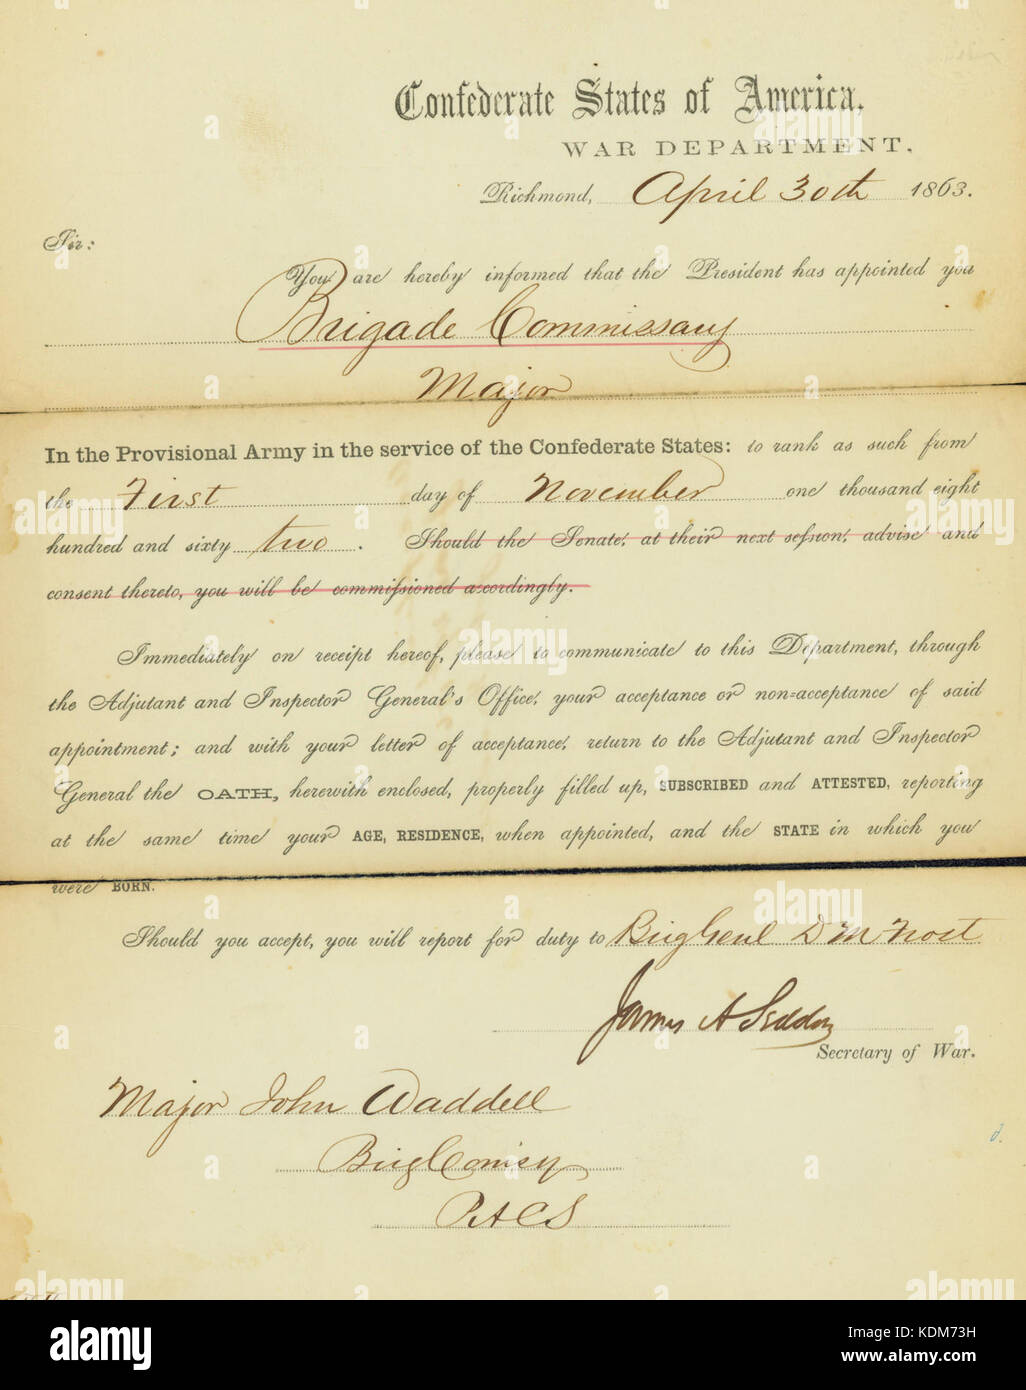 Confederate States of America,
WAR DEPARTMENT,
Richmond, April 30th 1863.
Sir:
You are hereby informed that the President has appointed you
Brigade Commissary
Major
In the Provisional Army in the service of the Confederate States: to rank as such from
the First day of November one thousand eight
hundred and sixty two. Should the Senate, at their next session, advise and
consent thereto, you will be commissioned accordingly.
Immediately on receipt hereof, please to communicate to this Department, through
the Adjutant and Inspector General's Office, your acceptance or non-acceptance of said
appointment; and with your letter of acceptance, return to the Adjutant and Inspector
General the OATH, herewith enclosed, properly filled up, SUBSCRIBED and ATTESTED, reporting
at the same time your AGE, RESIDENCE, when appointed, and the STATE in which you
were BORN.
Should you accept, you will report for duty to Brig Genl D M Frost
James A Seddon
Secretary of War.
Major John Waddell
Brig Comisy
PACS
alamy
Image ID: KDM73H
www.alamy.com